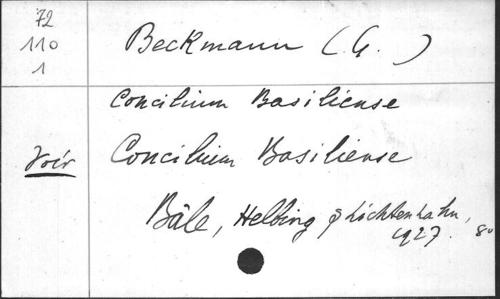 72
110
1
Beckmann (G. )
Concilium Basiliense
Voir Concilium Basiliense
Bâle, Helbing & Lichtenhahn,
1927. 8º